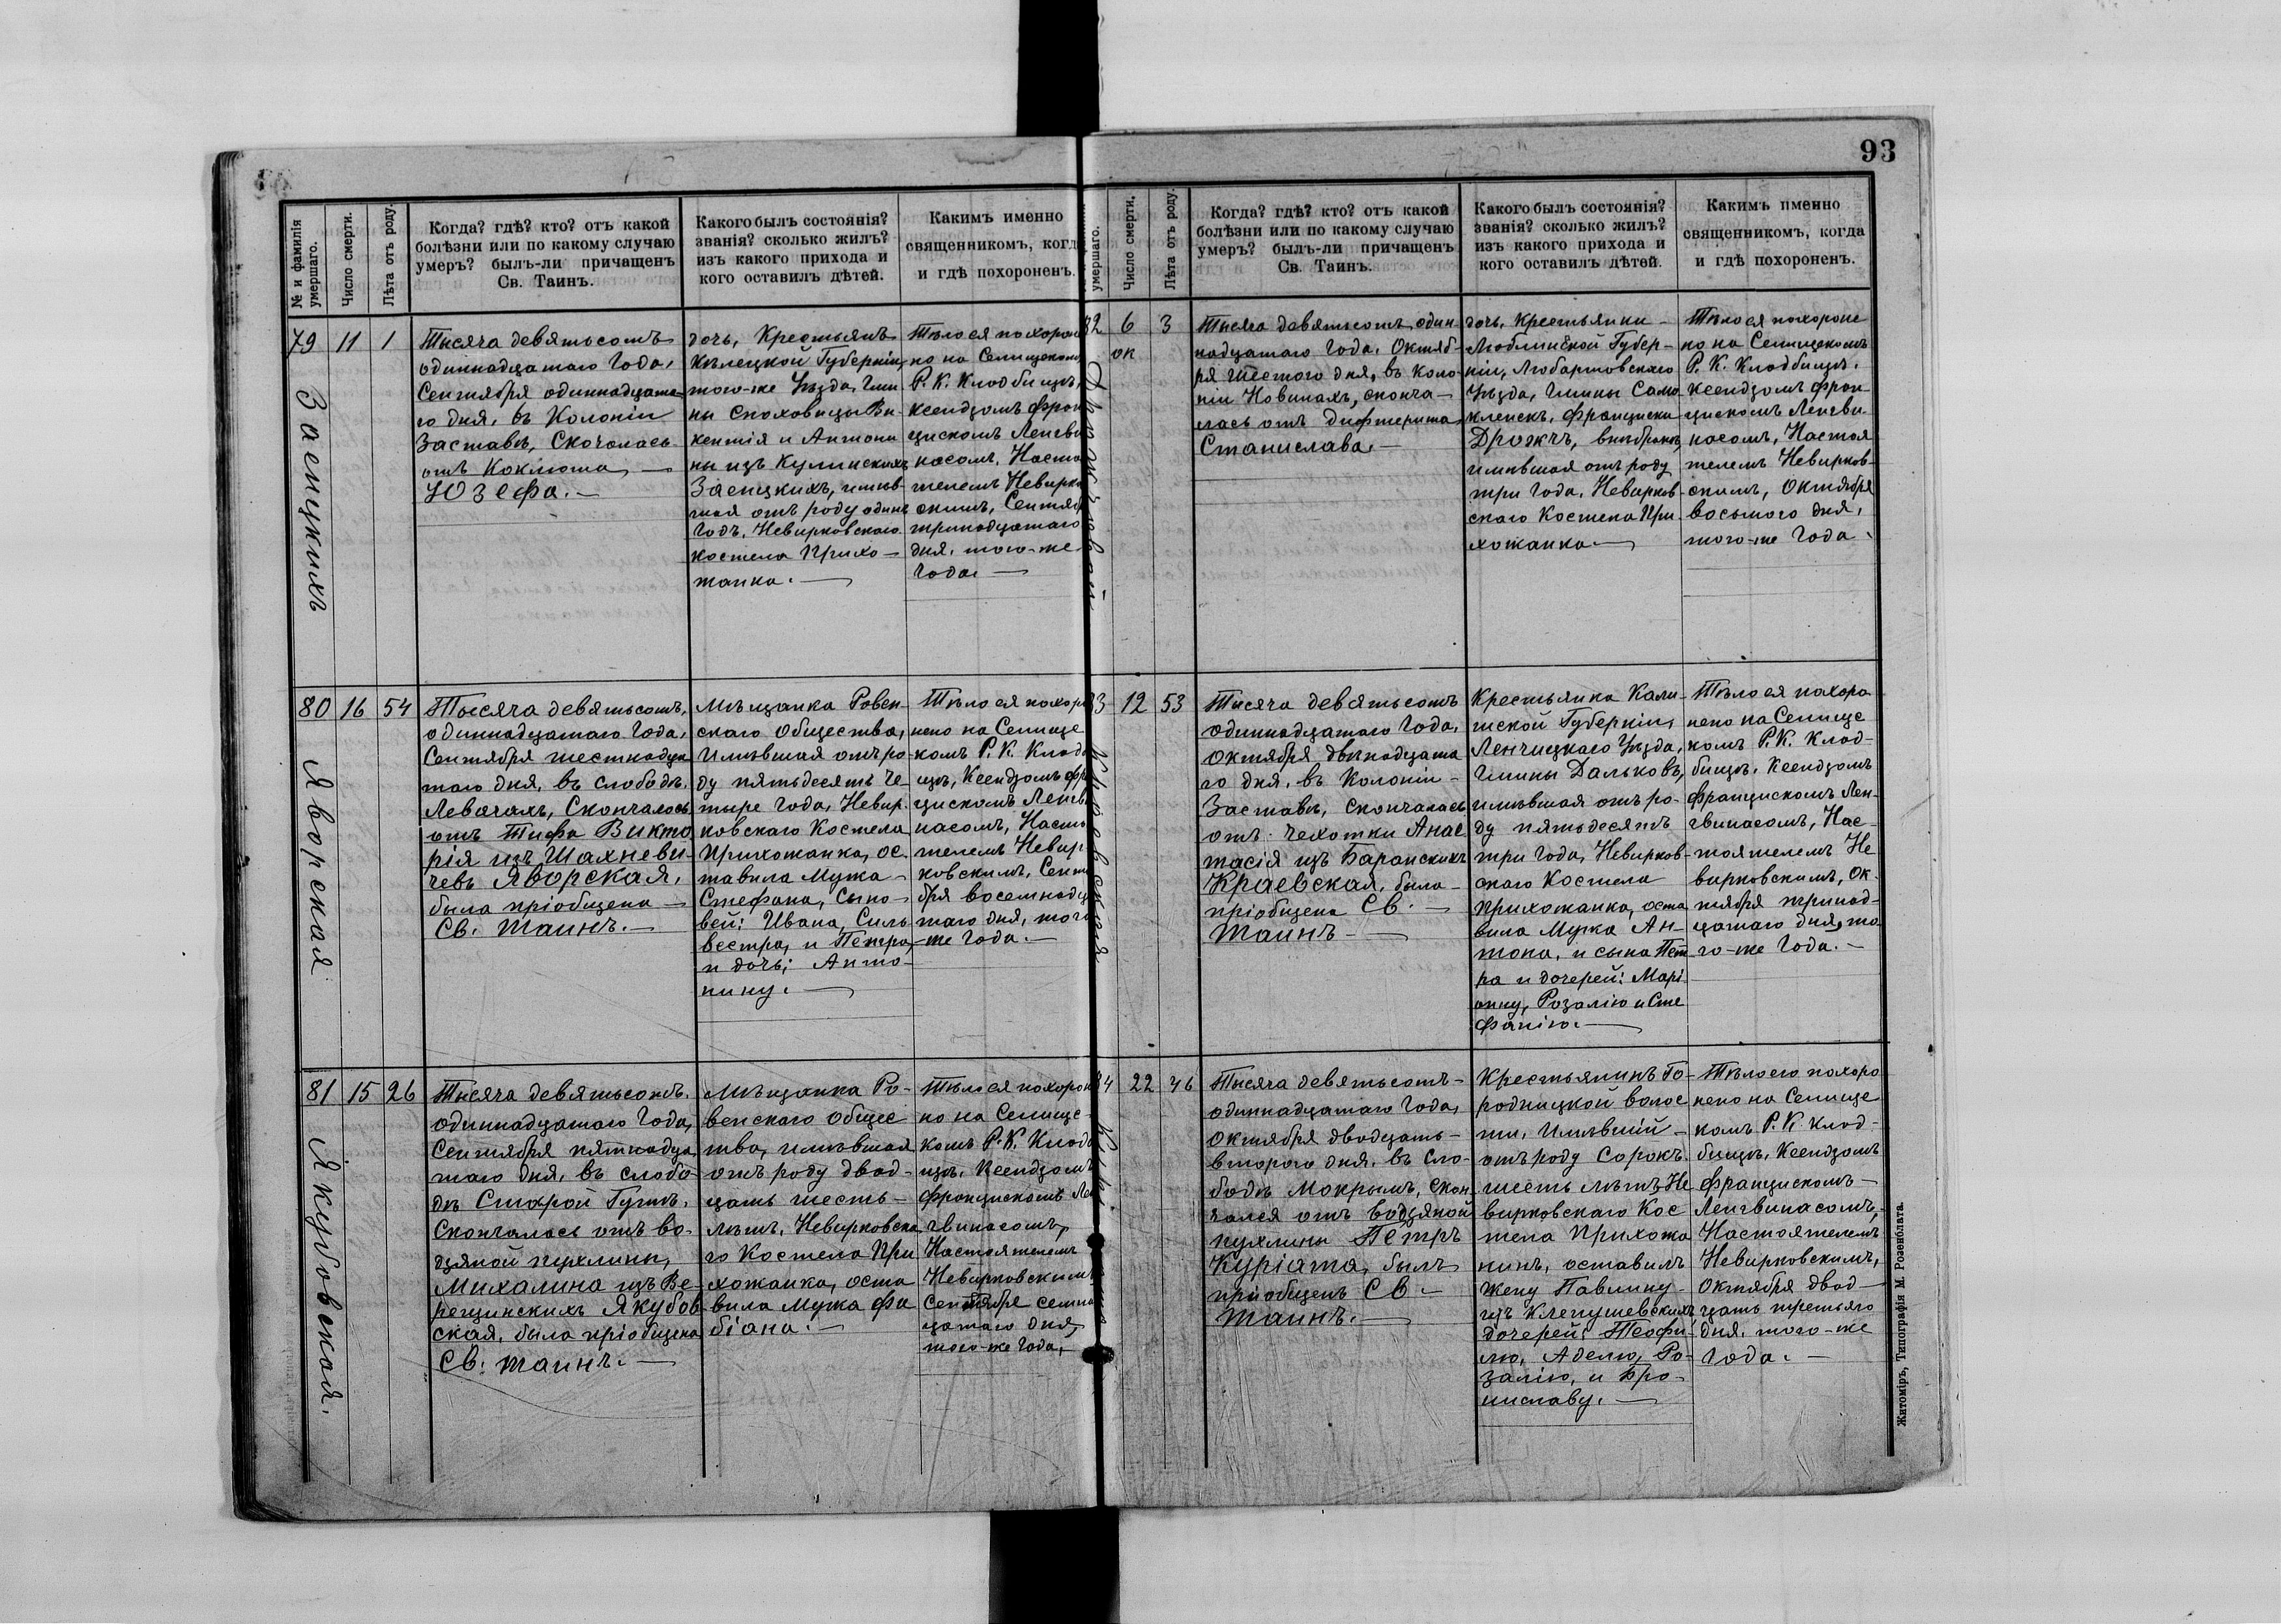 93
№ и фамилія
умершаго.
Число смерти.
Лѣта отъ роду.
Когда? гдѣ? кто? отъ какой
болѣзни или по какому случаю
умеръ? былъ-ли причащенъ
Св. Таинъ.
Какого былъ состоянія?
званія? сколько жилъ?
изъ какого прихода и
кого оставилъ дѣтей.
Какимъ именно
священникомъ, когд
и гдѣ похороненъ.
79
Заенцкихъ
11
1
Тысяча девятьсотъ
одиннадцатаго Года,
Сентября одиннадцата-
го дня, въ Колоніи
Заставѣ, Скончалась
отъ Коклюша
Юзефа.
дочь, Крестьянъ
Кѣлецкой Губерніи,
того-же Уѣзда, Гми
ны Снохови́цы Ви-
кентія и Антони
ны изъ Кулинскихъ
Заенцкихъ, имѣв-
шая отъ роду одинъ
Годъ, Невирковскаго
костела Прихо-
жанка.
Тѣло ея похоро
но на Селищском
Р. К. Кладбищѣ,
ксендзомъ Фран
цискомъ Ленгви
насомъ, Насто
телемъ Невирко
скимъ, Сентяб
тринадцатаго
дня, того-же
Года.
80
Яворская
16
54
Тысяча девятьсотъ,
одиннадцатаго Года,
Сентября шестнадца
таго дня, въ слободѣ
Левачахъ, Скончалась
отъ Тифа Викто
рія изъ Шахневи-
чевъ Яворская,
была пріобщена
Св. Таинъ.
Мѣщанка Ровен-
скаго Общества,
Имѣвшая отъ ро
ду пятьдесятъ че-
тыре Года, Невир-
ковскаго Костела
Прихожанка, ос-
тавила Мужа
Стефана, Сыно-
вей: Ивана, Силь
вестра, и Петра,
и дочь: Анто-
нину.
Тѣло ея похоро
нено на Селище
комъ Р. К. Кладб
щѣ, Ксендзомъ Фр
цискомъ Ленгв
насомъ, Насто
телемъ Невир
ковскимъ, Сент
бря восемнадц
таго дня, того
-же Года.
81
Якубовская.
15
26
Тысяча девятьсотъ.
одиннадцатаго Года,
Сентября пятнадца
таго дня, въ слобо-
дѣ Старой Гутѣ,
Скончалась отъ во-
дяной пухлины,
Михалина изъ Ве-
рещинскихъ Якубов
ская, была пріобщена
Св: таинъ.
Мѣщанка Ро-
венскаго общес
тва, имѣвшая
отъ роду двад-
цать шесть
лѣтъ, Невирковска
го Костела При
хожанка, оста
вила Мужа Фа
біана.
Тѣло ея похорон
но на Селище
комъ Р. К. Кладб
щѣ, Ксендзомъ
Францискомъ Лен
гвинасомъ,
Настоятелемъ
Невирковскимъ
Сентября семна
цатаго дня,
того-же Года,
умершаго.
Число смерти.
Лѣта отъ роду.
Когда? гдѣ? кто? отъ какой
болѣзни или по какому случаю
умеръ? былъ-ли причащенъ
Св. Таинъ.
Какого былъ состоянія?
званія? сколько жилъ?
изъ какого прихода и
кого оставилъ дѣтей.
Какимъ именно
священникомъ, когда
и гдѣ похороненъ.
82
6
ок
3
Тысяча девятьсотъ один
надцатаго Года, Октяб-
ря шестого дня, въ коло-
ніи Новинахъ, сконча-
лась отъ дифтерита,
Станислава.
дочь, Крестьянки
Люблинской Губер-
ніи, Любартовскаго
Уѣзда, Гмины Само
клѣнскъ, Франциски
Дрожчъ, внѣбрачн,
имѣвшая отъ роду
три Года, Невирков-
скаго Костела При
хожанка.
Тѣло ея похороне
но на Селищскомъ
Р. К. Кладбищѣ,
ксендзомъ Фран-
цискомъ Ленгви-
насомъ, Настоя
телемъ Невирков-
скимъ, Октября
восьмого дня,
того-же Года.
83
12
53
Тысяча девятьсотъ
одиннадцатаго Года,
Октября двѣнадцата
го дня, въ Колоніи
Заставѣ, скончалась
отъ чахотки Анас
тасія изъ Баранскихъ
Краевская, была
пріобщена Св.
Таинъ
Крестьянка Кали-
шской Губерніи,
Ленчицкаго Уѣзда,
Гмины Дальковъ,
имѣвшая отъ ро-
ду пятьдесятъ
три Года, Невирков-
скаго Костела
Прихожанка, оста
вила Мужа Ан-
тона, и сына Пет
ра и дочерей: Марі
анну, Розалію и Сте
фанію.
Тѣло ея похоро
нено на Селище
комъ Р. К. Клад-
бищѣ, Ксендзомъ
Францискомъ Лен-
гвинасомъ, Нас-
тоятелемъ Не
вирковскимъ, Ок-
тября тринад-
цатаго дня, то-
го-же Года.
84
22
46
Тысяча девятьсотъ-
одиннадцатаго Года,
Октября двадцать-
второго дня, въ Сло-
бодѣ Мокрымъ, Скон
чался отъ водяной
пухлины Петръ
Куріата, былъ
пріобщенъ Св
Таинъ.
Крестьянинъ Го-
родницкой волос
ти, Имѣвшій
отъ роду Сорокъ
шесть лѣтъ, Не
вирковскаго Кос
тела Прихожа
нинъ, оставилъ
жену Павлину
изъ Клепушевскихъ
дочерей: Теофи-
лю, Аделю, Ро-
залію, и Бро-
ниславу.
Тѣло его похоро
нено на Селище
комъ Р. К. Клад-
бищѣ, Ксендзомъ
Францискомъ
Ленгвинасомъ,
Настоятелемъ
Невирковскимъ,
Октября двад-
цать третьяго
дня, того-же
Года.
Житоміръ, Типографія М. Розенблата.